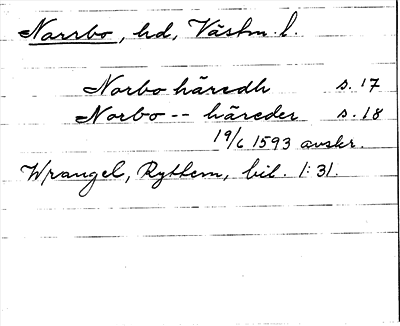 Norrbo, hd, Västm. l.
Norbo häredh s. 17
Norbo -- häreder s. 18
19/6 1593 avskr.
Wrangel, Ryttern, bil. 1: 31.